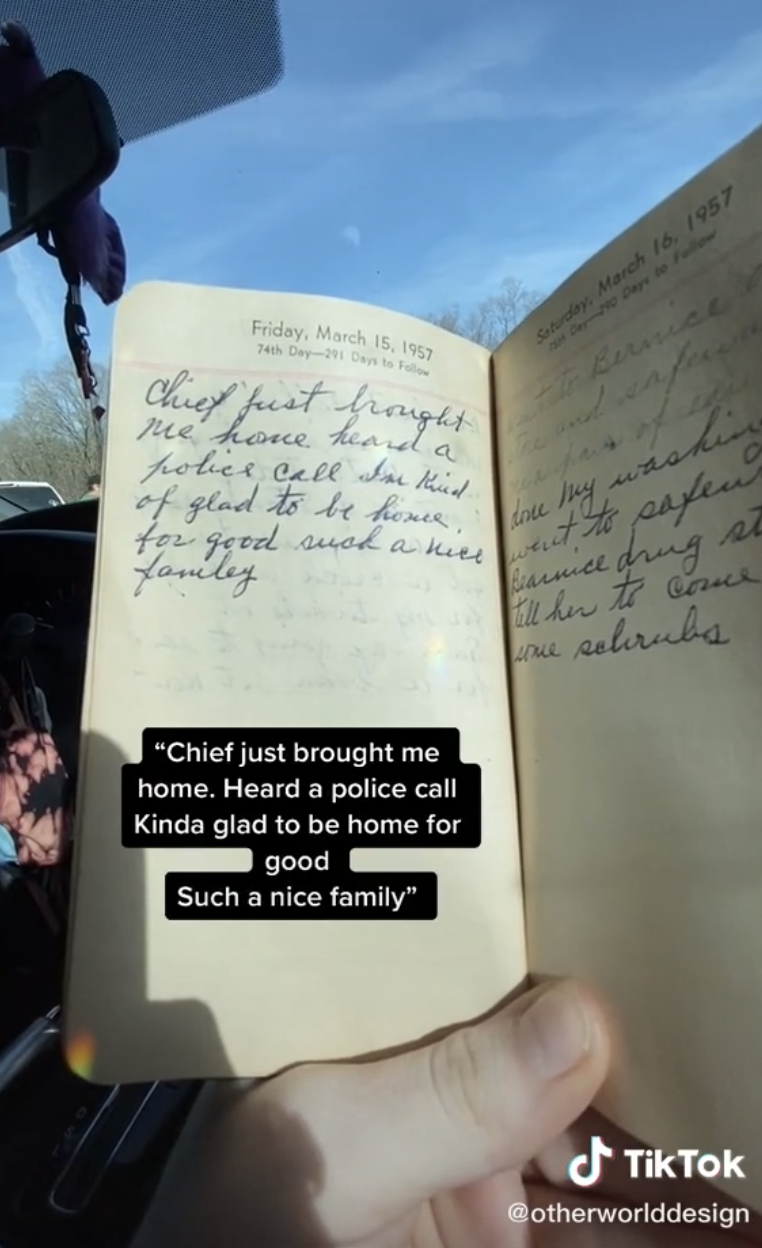 Friday, March 15, 1957
74th Day—291 Days to Follow
Chief just brought
me home heard a
police call Im Kind
of glad to be home.
for good such a nice
familey
Saturday, March 16, 1957
75th Day—290 Days to Follow
to Bernice
and
of
done my washing
went to
Bearnice drug st
tell her to come
some schrubs
“Chief just brought me
home. Heard a police call
Kinda glad to be home for
good
Such a nice family”
TikTok
@otherworlddesign